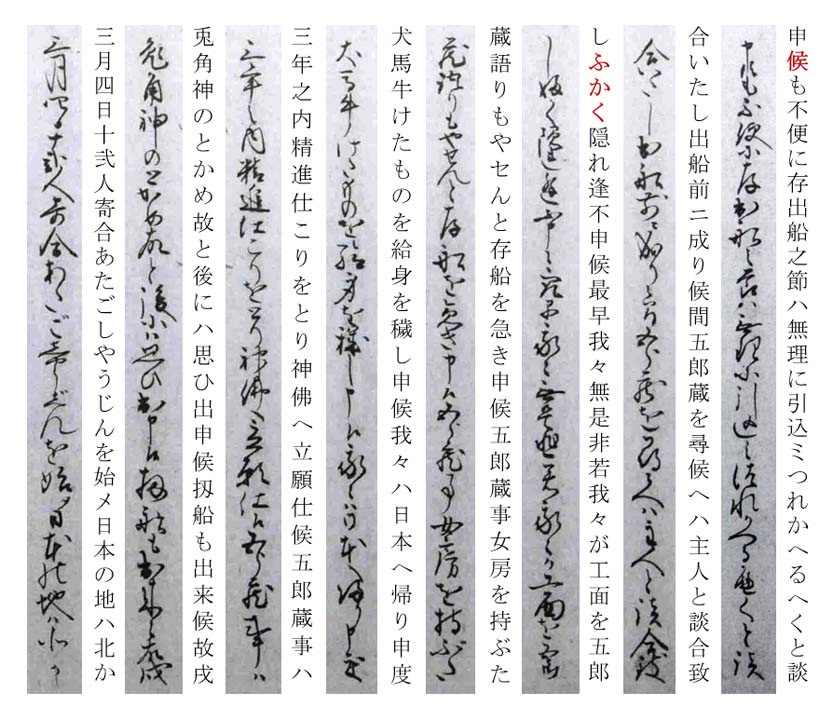 申候も不便に存出船之節ハ無理に引込ミつれかへるへくと談
合いたし出船前ニ成り候間五郎蔵を尋候へハ主人と談合致
しふかく隠れ逢不申候最早我々無是非若我々が工面を五郎
蔵語りもやセんと存船を急き申候五郎蔵事女房を持ぶた
犬馬牛けたものを給身を穢し申候我々ハ日本へ帰り申度
三年之内精進仕こりをとり神佛へ立願仕候五郎蔵事ハ
兎角神のとかめ故と後にハ思ひ出申候扨船も出来候故戌
三月四日十弐人寄合あたごしやうじんを始メ日本の地ハ北か